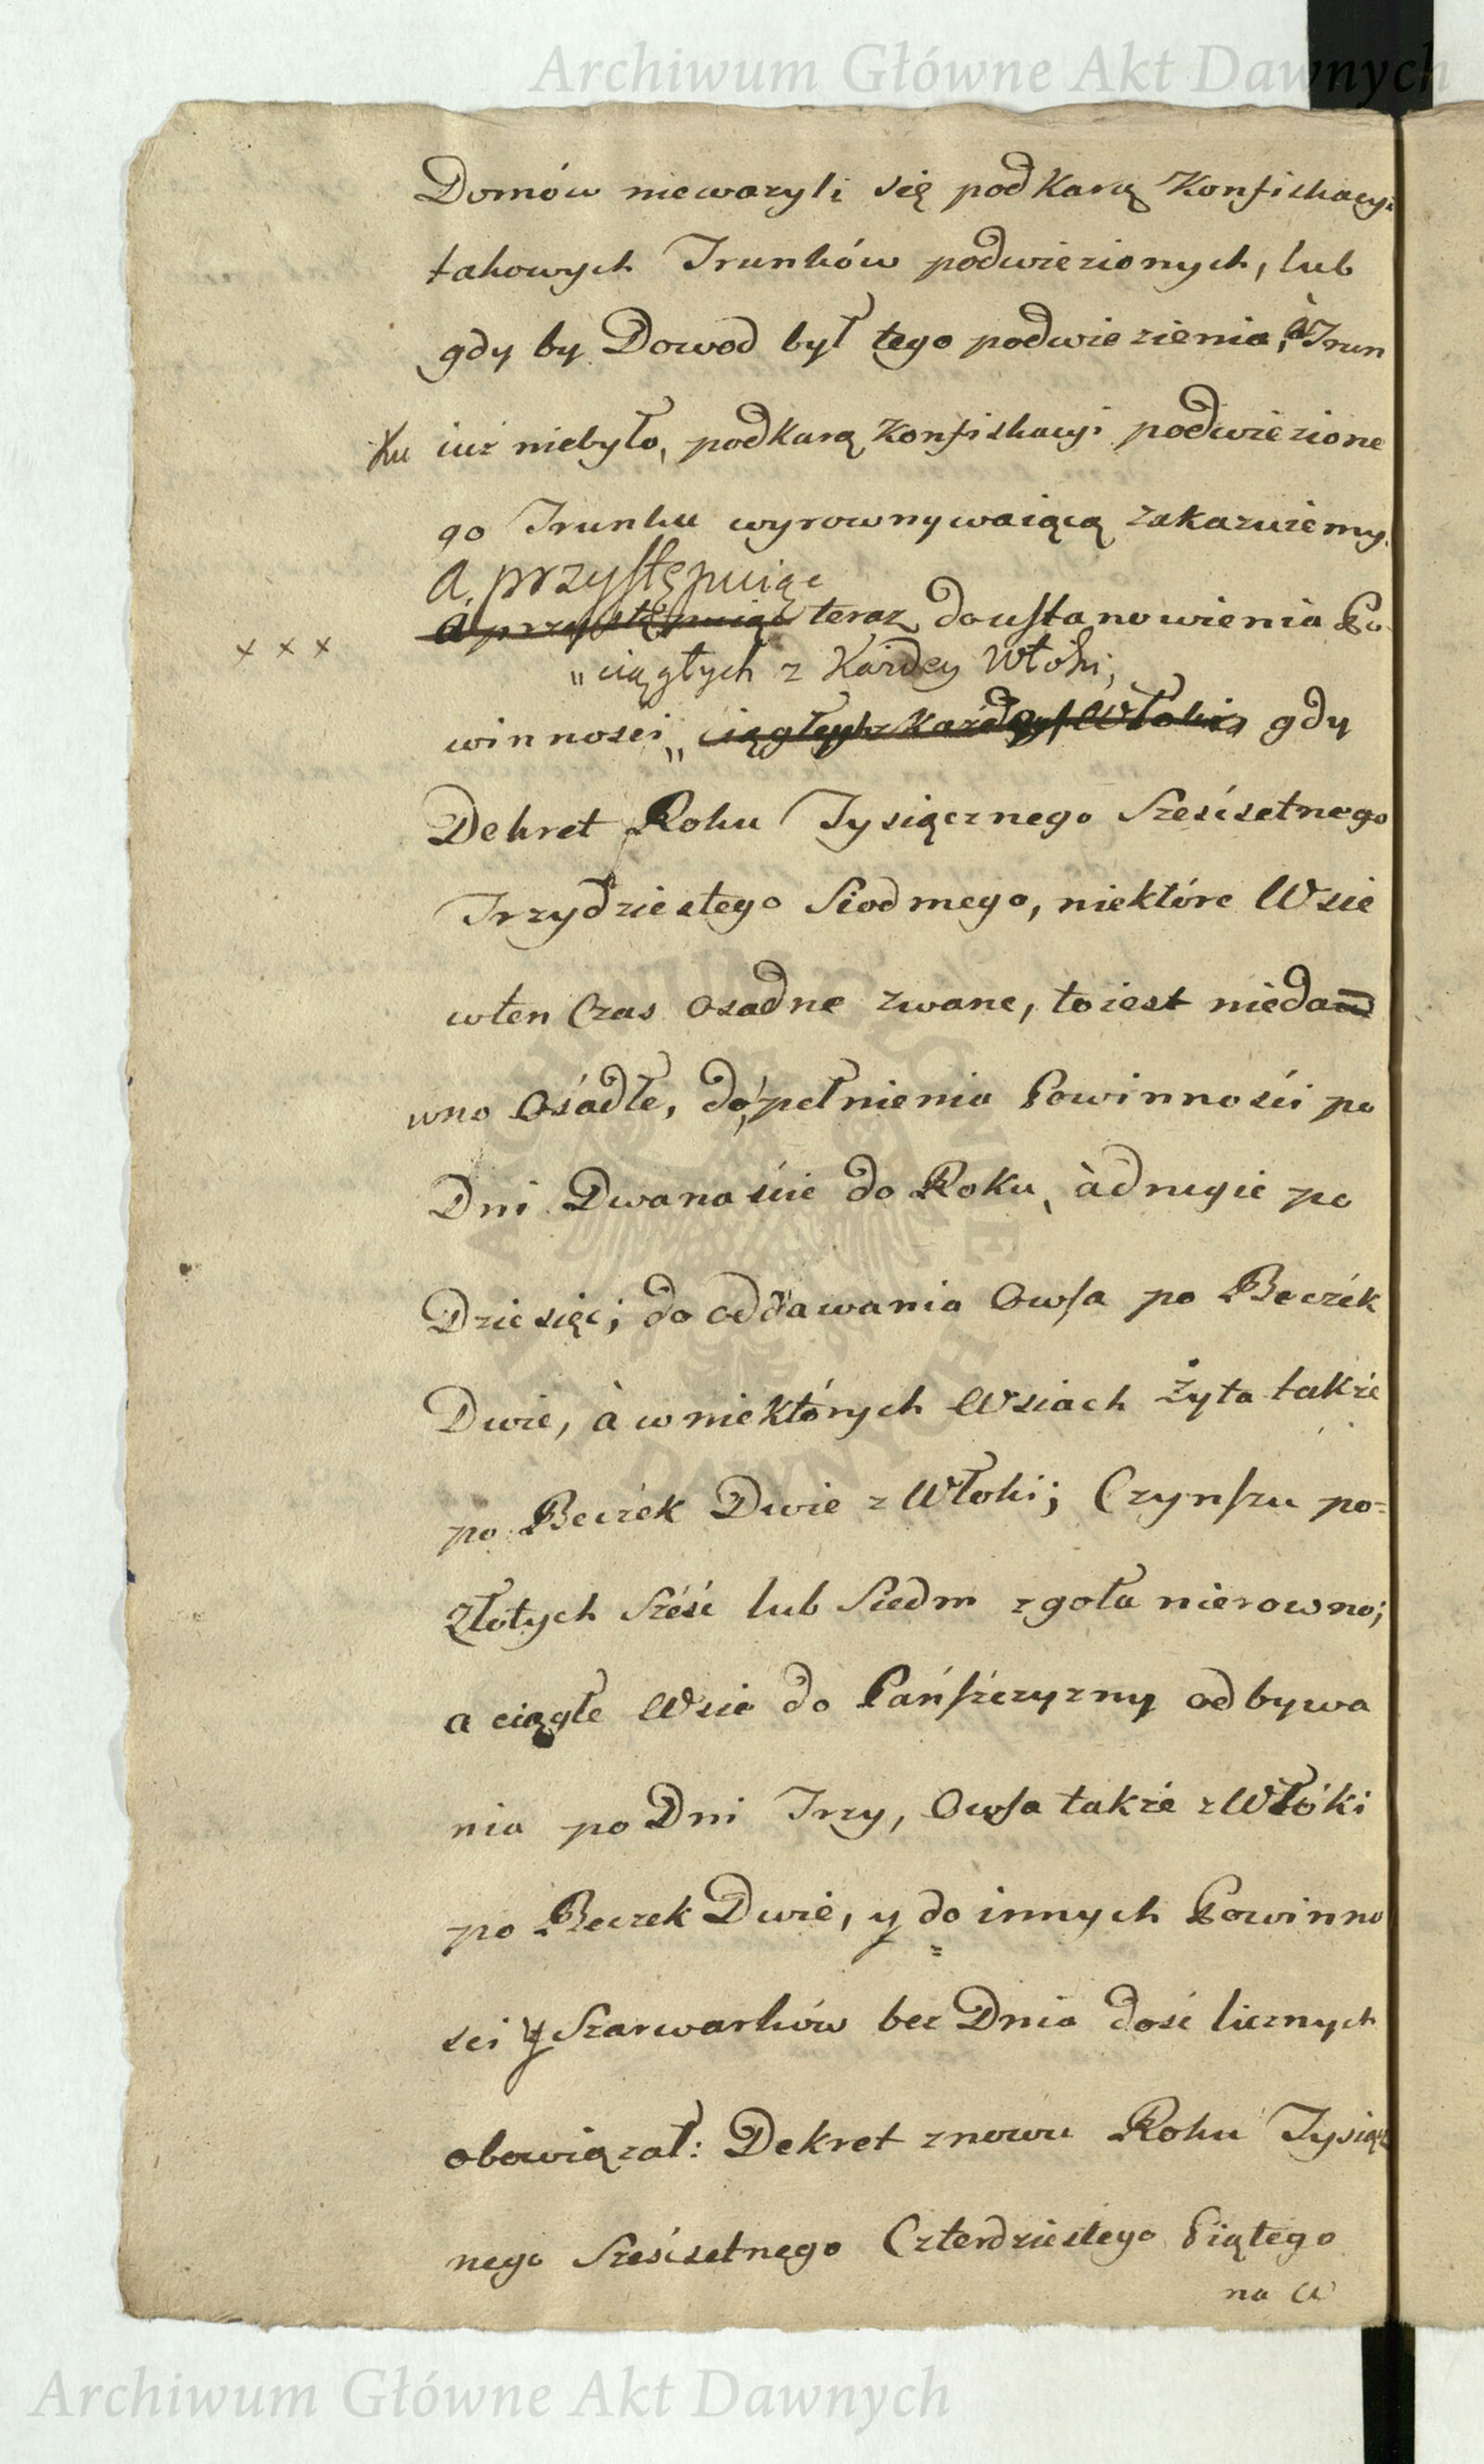 Archiwum Główne Akt Dawnych
Domów niewazyli się pod Karą Konfiskacyi
takowych Trunków podwiezionych, lub
gdy by Dowod był tego podwiezienia, à Trun
ku iuż niebyło, pod karą Konfiskacyi podwiezione
go Trunku wyrownywaiącą zakazuiemy.
A przystępuiąc
A przystępuiąc teraz do ustanowienia Po
x x x
„ciągłych z Każdey Włoki,
winnosci „ciągłych z każdey Włoki, gdy
Dekret Roku Tysiącznego Sześćsetnego
Trzydziestego Siodmego, niektóre Wsie
wten Czas Osadne zwane, toiest nieda
wno Osiadłe, do pełnienia Powinności po
Dni Dwanaście do Roku, à drugie po
Dziesięć; do oddawania Owsa po Beczek
Dwie, à w niektórych Wsiach Żyta także
po Beczek Dwie z Włoki; Czynszu po=
Złotych Sześć lub Siedm zgoła nierowno;
a ciągłe Wsie do Pańszczyzny odbywa
nia po Dni Trzy, Owsa także z Włóki
po Beczek Dwie, y do innych Powinno
sci y Szarwarków bez Dnia dość licznych
obowiązał: Dekret znowu Roku Tysiącz
nego Sześćsetnego Czterdziestego Piątego
na W
ARCHIWUM GŁÓWNE AKT DAWNYCH
Archiwum Główne Akt Dawnych